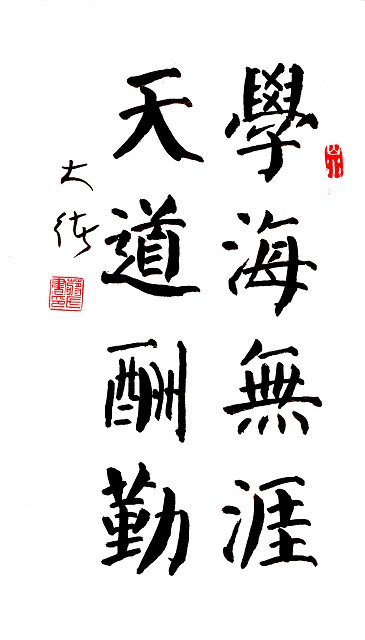 學海無涯
天道酬勤
大德